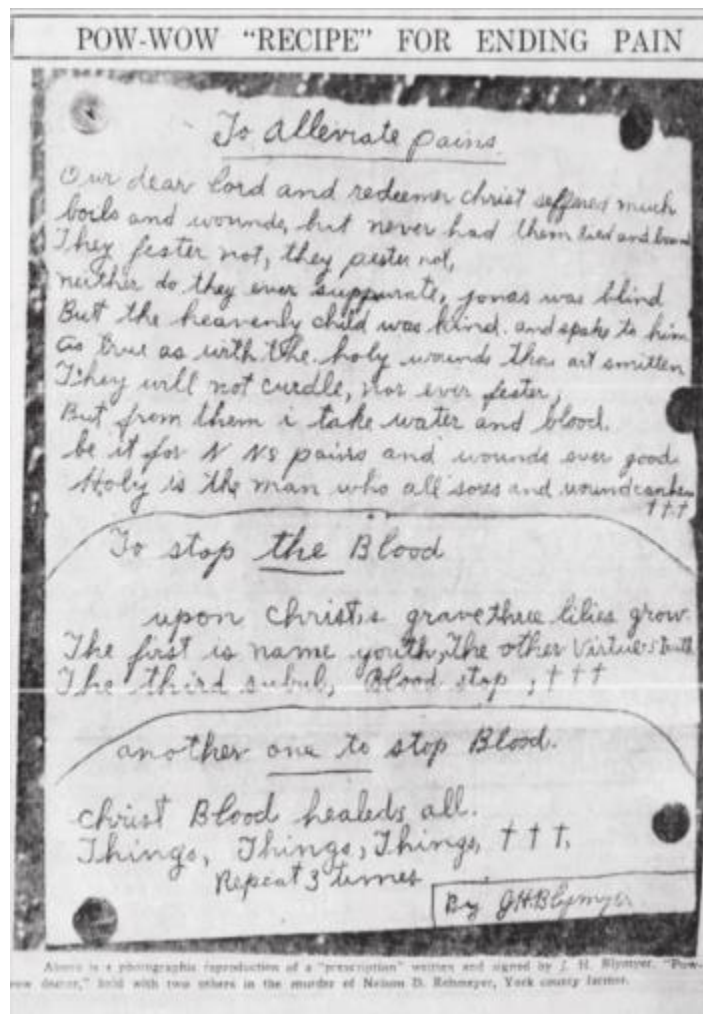 POW-WOW “RECIPE” FOR ENDING PAIN
To Alleviate pains.
Our dear lord and redeemer christ seffered much
boils and wounds, but never had them tied and
They fester not, they pester not,
neither do they ever suppurate, jonas was blind
But the heavenly child was kind. and spake to him
as true as with the holy wounds thou art smitten
They will not curdle, nor ever fester,
But from them i take water and blood.
be it for N Ns pains and wounds ever good
Holy is the man who all sores and wound can
†††
To stop the Blood
upon christ,s grave three lilies grow.
The first is name youth, The other Virtue,s
The third subul, Blood stop, † † †
another one to stop Blood.
christ Blood healeds all.
Things, Things, Things, † † †,
Repeat 3 times
By J.H.Blymyer.
Above is a photographic reproduction of a “prescription” written and signed by J. H. Blymyer, “Pow-
wow doctor,” held with two others in the murder of Nelson D. Rehmeyer, York county farmer.